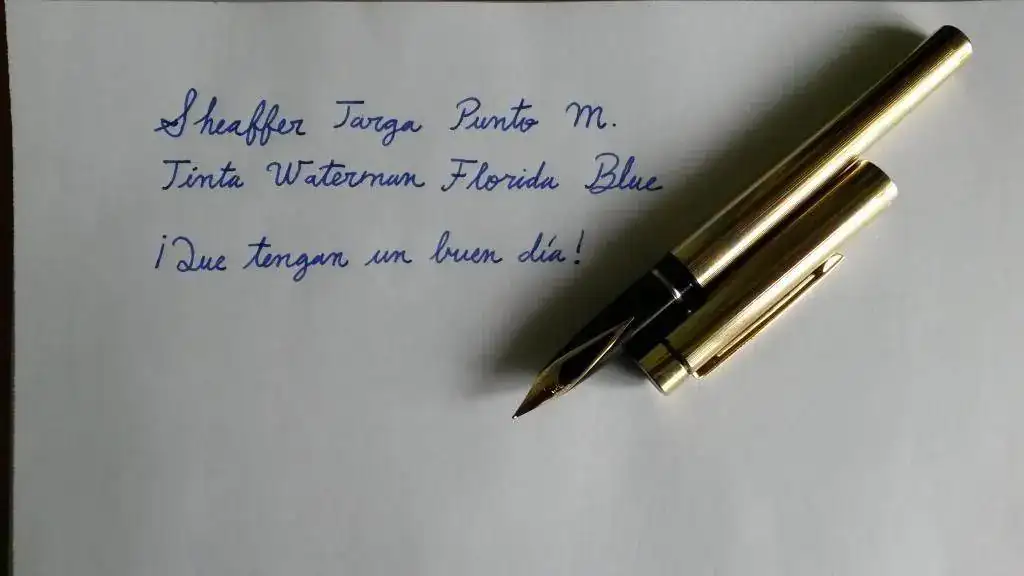 Sheaffer Targa Punto M.
Tinta Waterman Florida Blue
¡Que tengan un buen día!